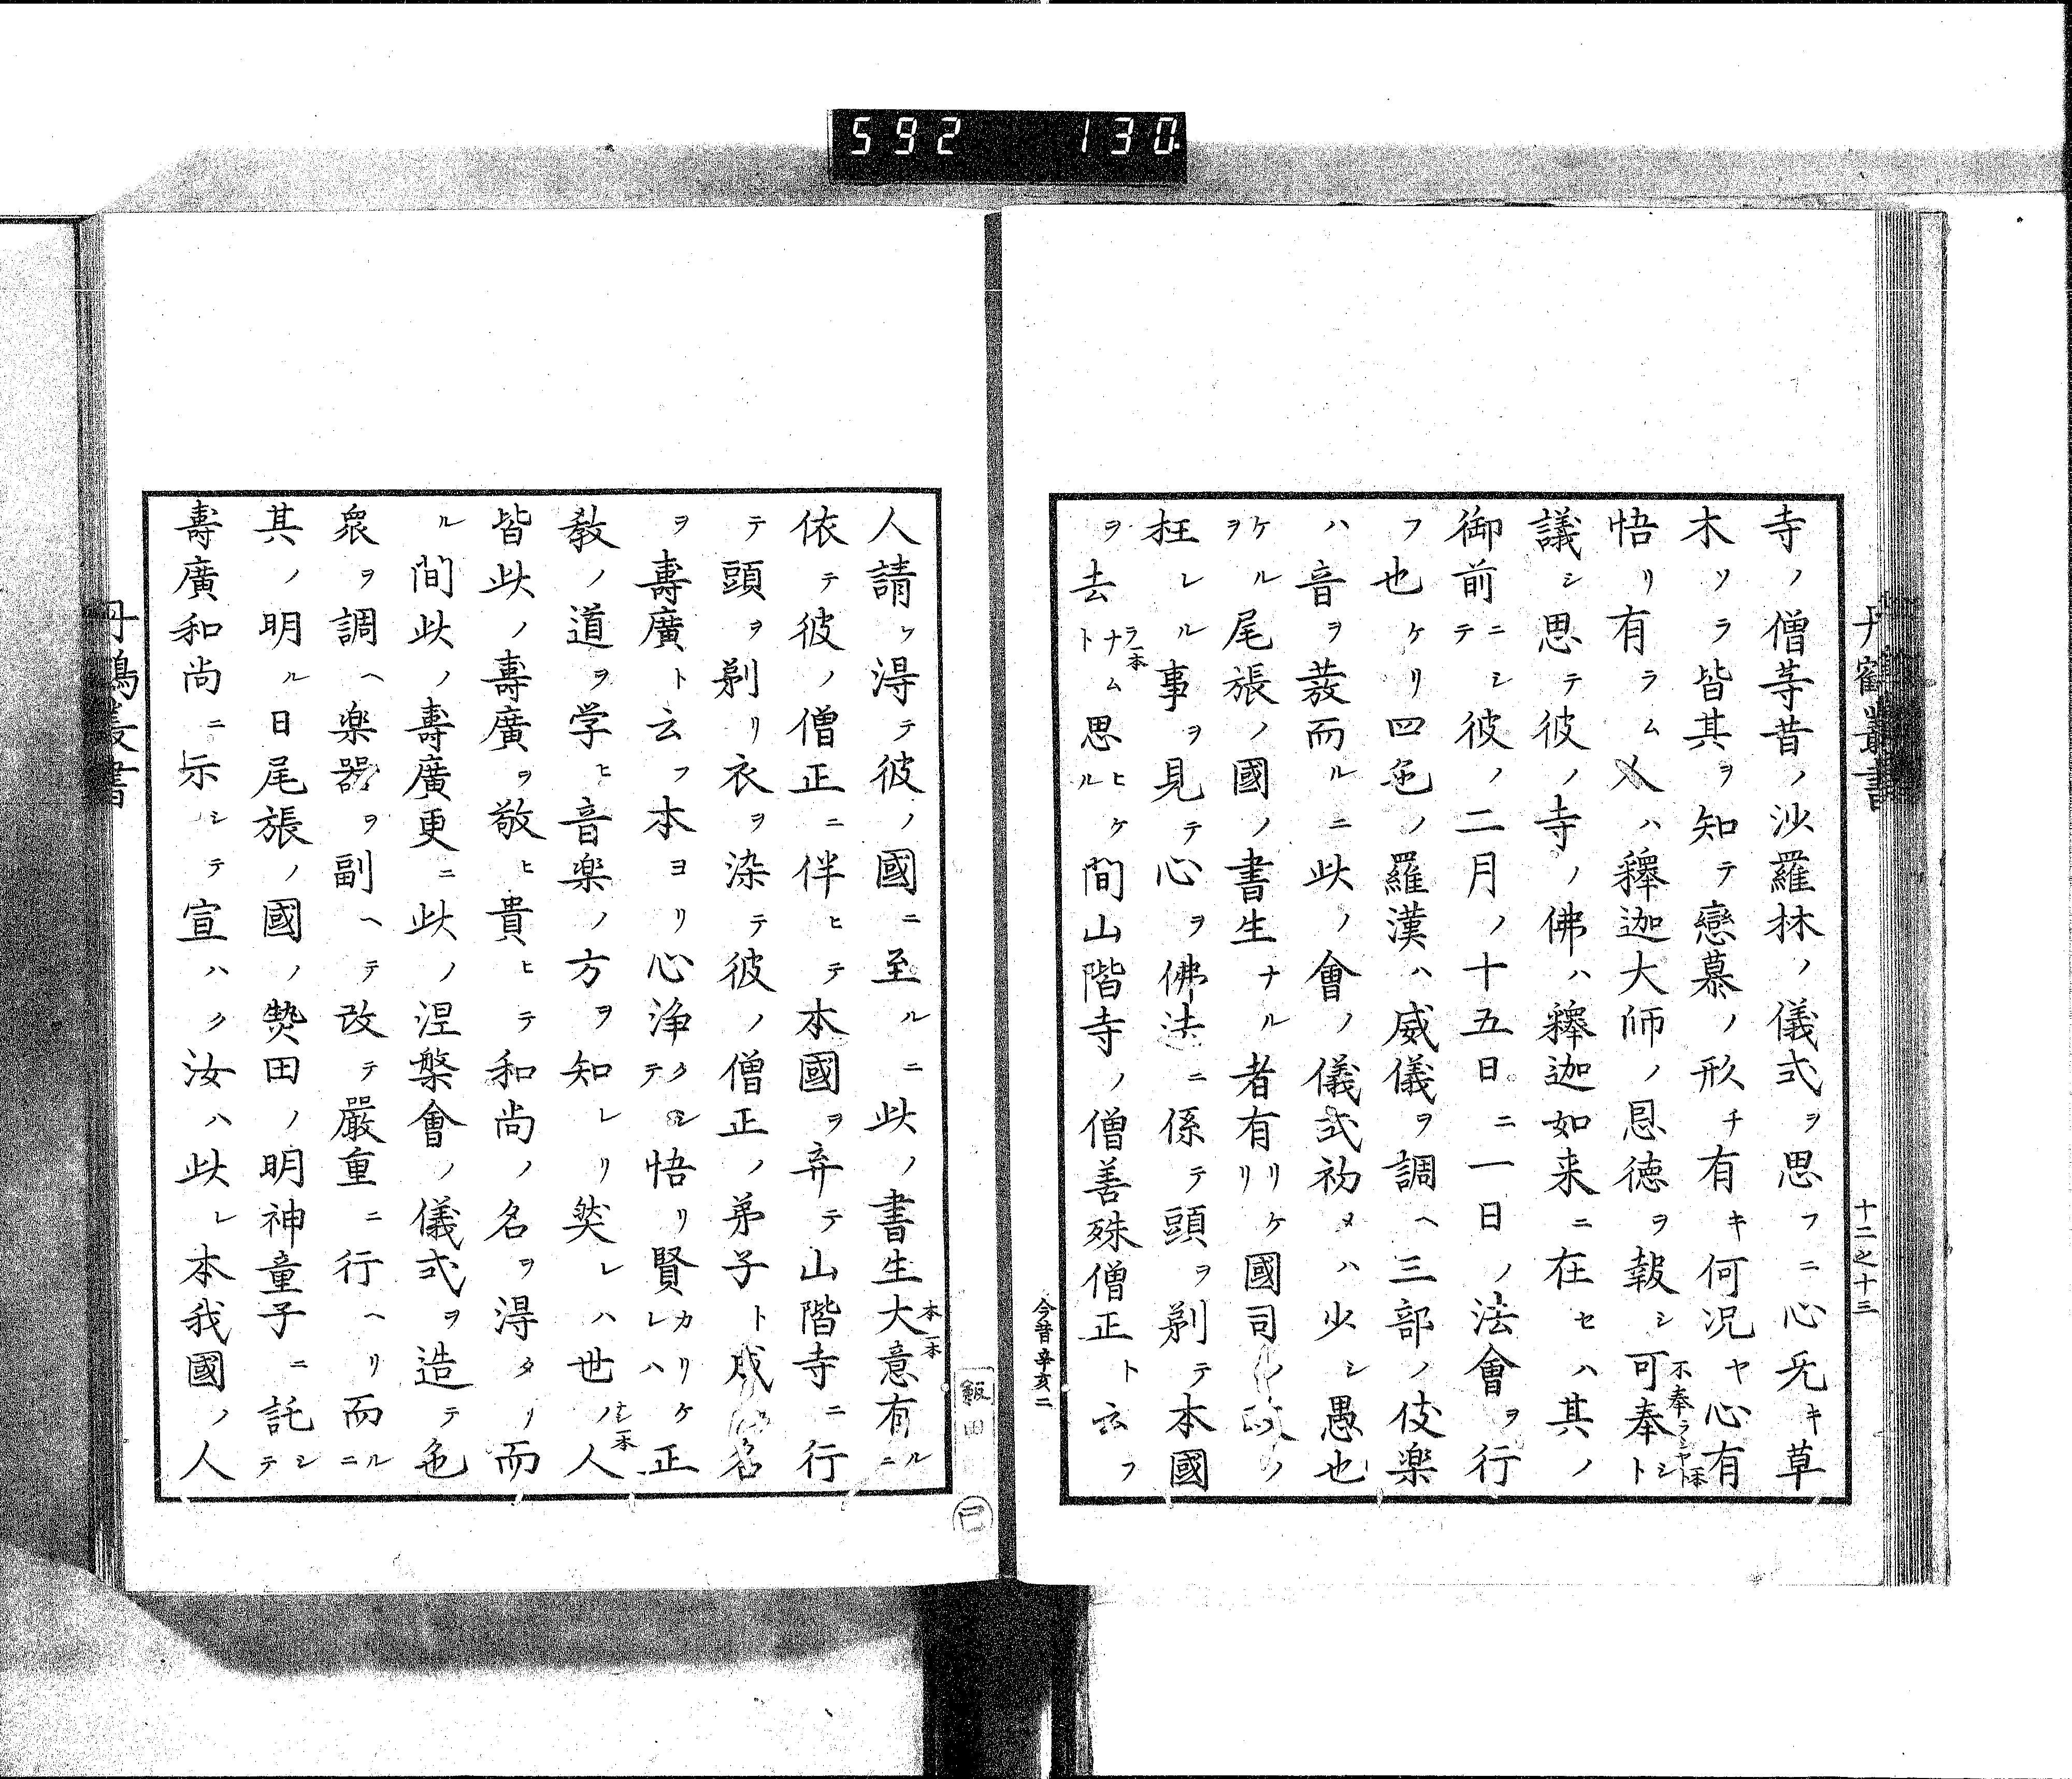 592 130
十二之十三
寺ノ僧等昔ノ沙羅林ノ儀式ヲ思フニ心旡キ草
木ソラ皆其ヲ知テ戀慕ノ形チ有キ何况ヤ心有
悟リ有ラム人ハ釋迦大師ノ恩徳ヲ報シ可奉シト
不奉ラシヤト一本
議シ思テ彼ノ寺ノ佛ハ釋迦如来ニ在セハ其ノ
御前ニシテ彼ノ二月ノ十五日ニ一日ノ法會ヲ行
フ也ケリ四色ノ羅漢ハ威儀ヲ調ヘ三部ノ伎楽
ハ音ヲ發而ルニ此ノ會ノ儀式初メハ少シ愚也
ケルヲ尾張ノ國ノ書生ナル者有リケリ國司ノ政ノ
枉レル事ヲ見テ心ヲ佛法ニ係テ頭ヲ剃テ本國
ヲ去ナムト思ヒケル間山階寺ノ僧善殊僧正ト云フ
ラ一本
今昔辛亥二
人請ケ得テ彼ノ國ニ至ルニ此ノ書生大意有ルニ
本一本
依テ彼ノ僧正ニ伴ヒテ本國ヲ弃テ山階寺ニ行
テ頭ヲ剃リ衣ヲ染テ彼ノ僧正ノ弟子ト成名
ヲ壽廣ト云フ本ヨリ心浄クシテ悟リ賢カリケレハ正
教ノ道ヲ学ヒ音楽ノ方ヲ知レリ然レハ世ノ人
皆此ノ壽廣ヲ敬ヒ貴ヒテ和尚ノ名ヲ得タリ而
ル間此ノ壽廣更ニ此ノ涅槃會ノ儀式ヲ造テ色
衆ヲ調ヘ楽器ヲ副ヘテ改テ嚴重ニ行ヘリ而ルニ
其ノ明ル日尾張ノ國ノ熱田ノ明神童子ニ託シテ
壽廣和尚ニ示シテ宣ハク汝ハ此レ本我國ノ人
飯田